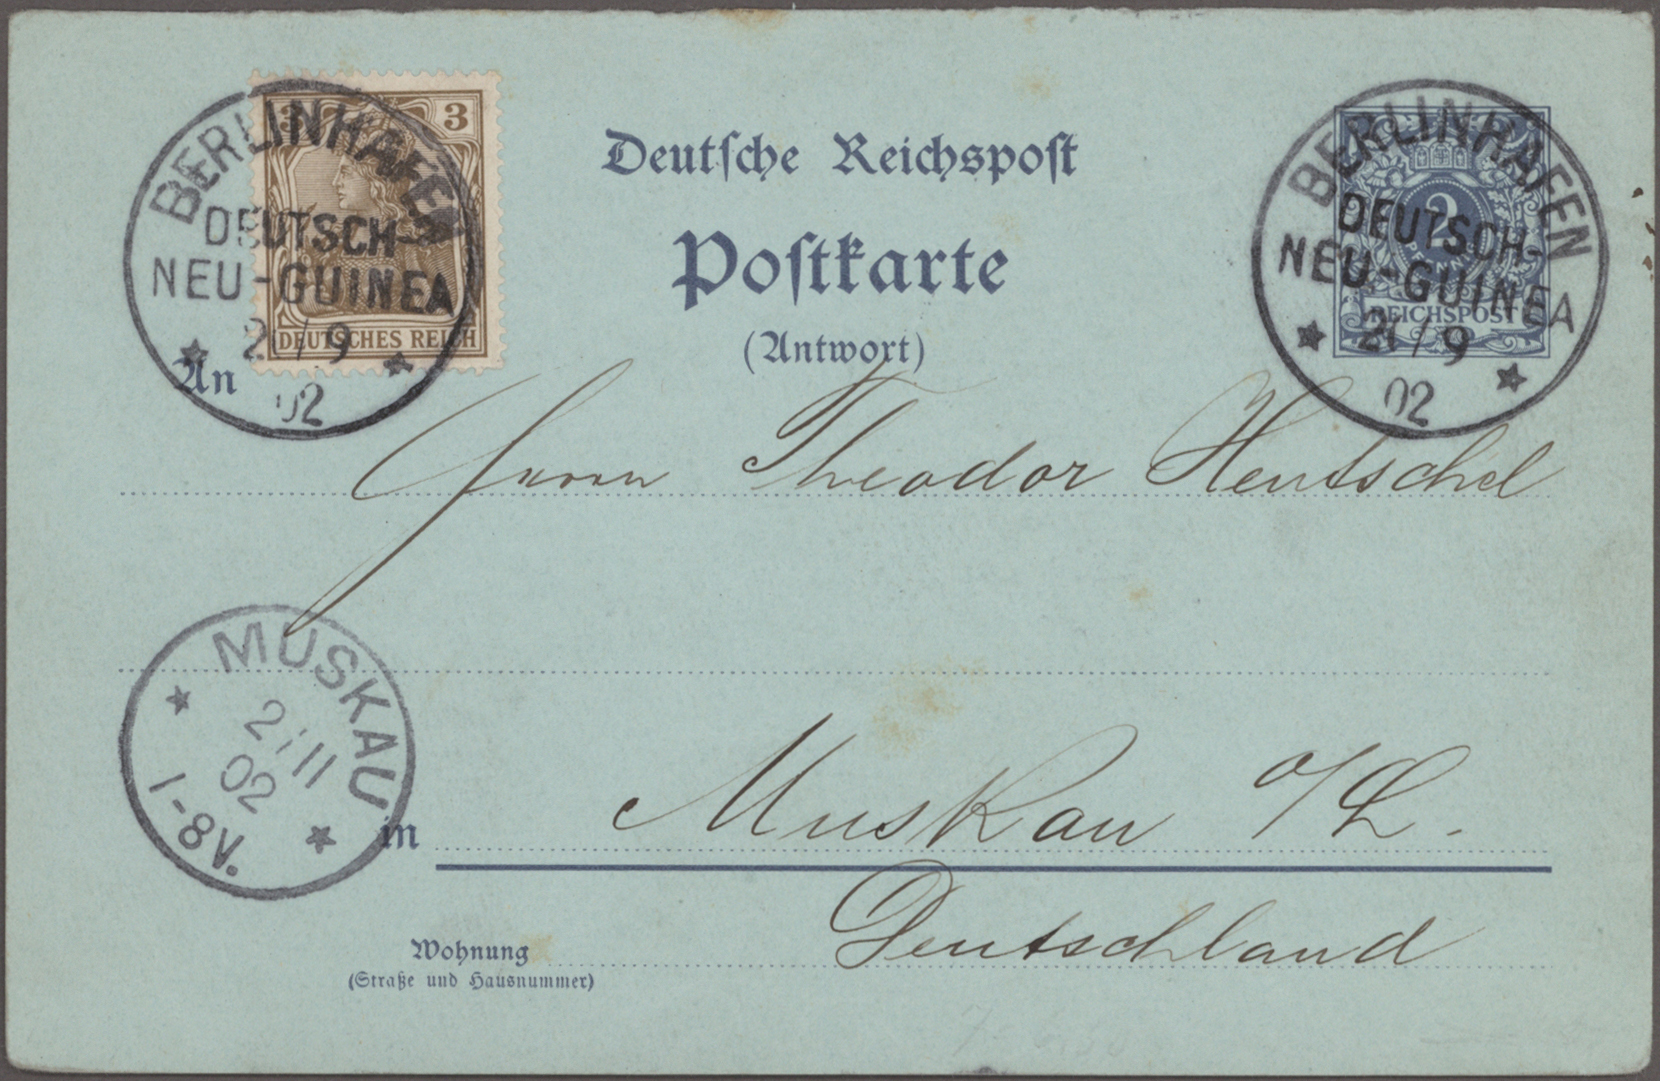 3 3
DEUTSCHES REICH
BERLINHAFEN
DEUTSCH-
NEU-GUINEA
21/9
02
Deutsche Reichspost
Postkarte
(Antwort)
2
REICHSPOST
BERLINHAFEN
DEUTSCH-
NEU-GUINEA
21/9
02
An
Herrn Theodor Hentschel
MUSKAU
2/11
02
1-8V.
in Muskau O/L.
Deutschland
Wohnung
(Straße und Hausnummer)